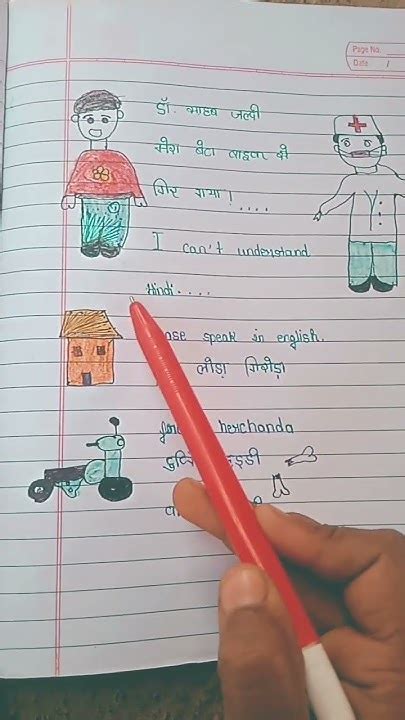 Page No.
Date /
डॉ. साहब जल्दी
मेरा बेटा बाइक से
गिर गया! ....
I can't understand
Hindi....
speak in english.
लोड़ा गिरोड़ा
herchonda